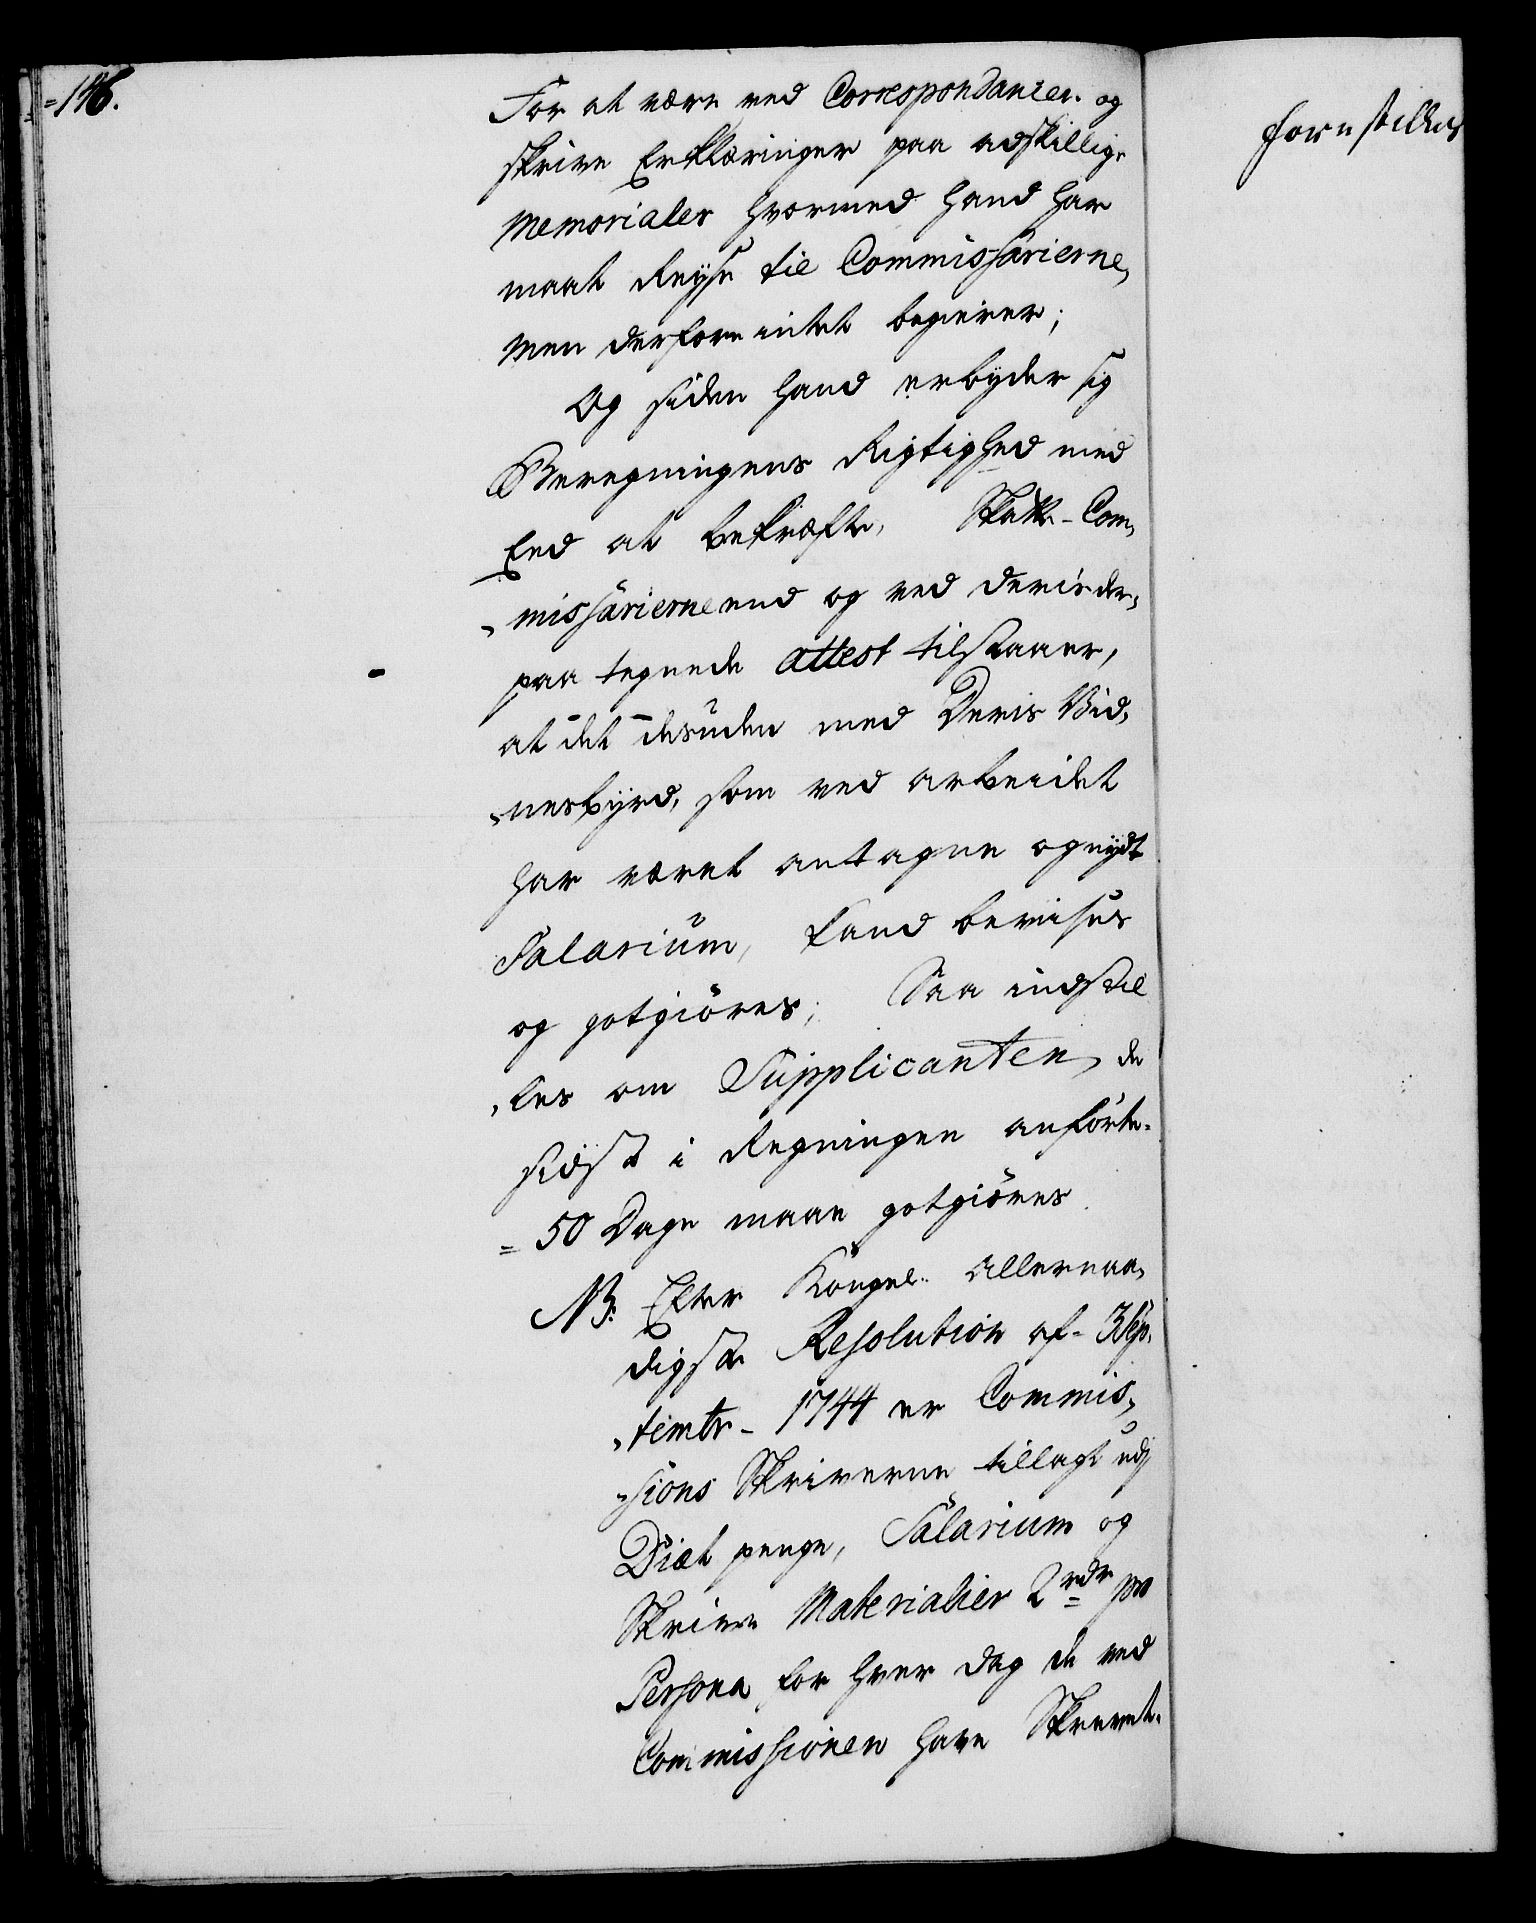 =146.
For at være ved Correspondancer og
skrive Erklæringer paa adskillige
Memorialer hvormed hand har
maat Reyse til Commissarierne,
Men derfore intet begierer;
Og siden hand erbyder sig
Beregningens Rigtighed med
Eed at bekræfte, Skatte-Com,
„missarierne end og ved deris der,
paa tegnede attest tilstaaer,
at det desuden med Deris Vid,
„nesbyrd, som ved arbeidet
har været antagne og nydt
Salarium, kand bevises
og gotgiöres; Saa indstil
„les om Supplicanten de
sidst i Regningen anförte
= 50 Dage maae gotgiöres.
NB. Efter Kongel. allernaa,
digste Resolution af 3 Sep,
„tembr. 1744 er Commis,
„sions Skriverne tillagt udj
Diæt penge, Salarium og
Skrive Materialier 2 rdr pro
Persona for hver dag de ved
Commissionen have Skrevet.
forestilles